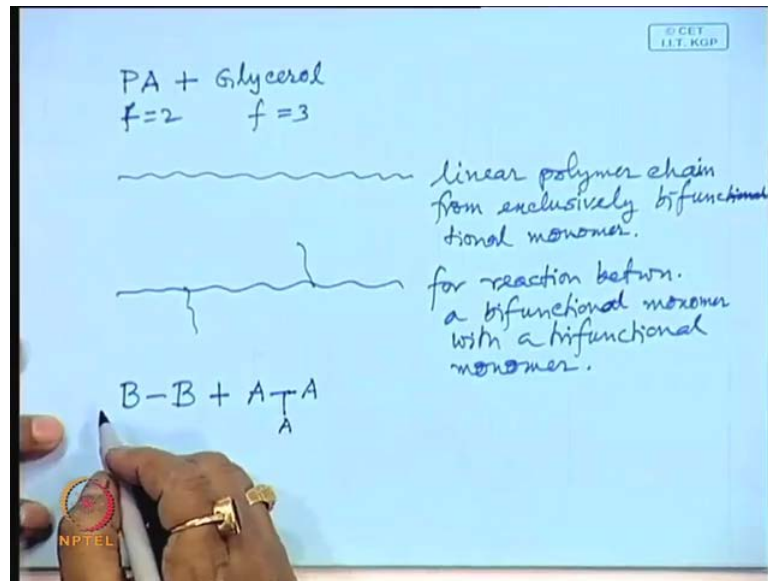 © CET
I.I.T. KGP
PA + Glycerol
f=2 f=3
linear polymer chain
from exclusively bifunctional
tional monomer.
for reaction betwn.
a bifunctional monomer
with a trifunctional
monomer.
B-B + A-A
A
NPTEL